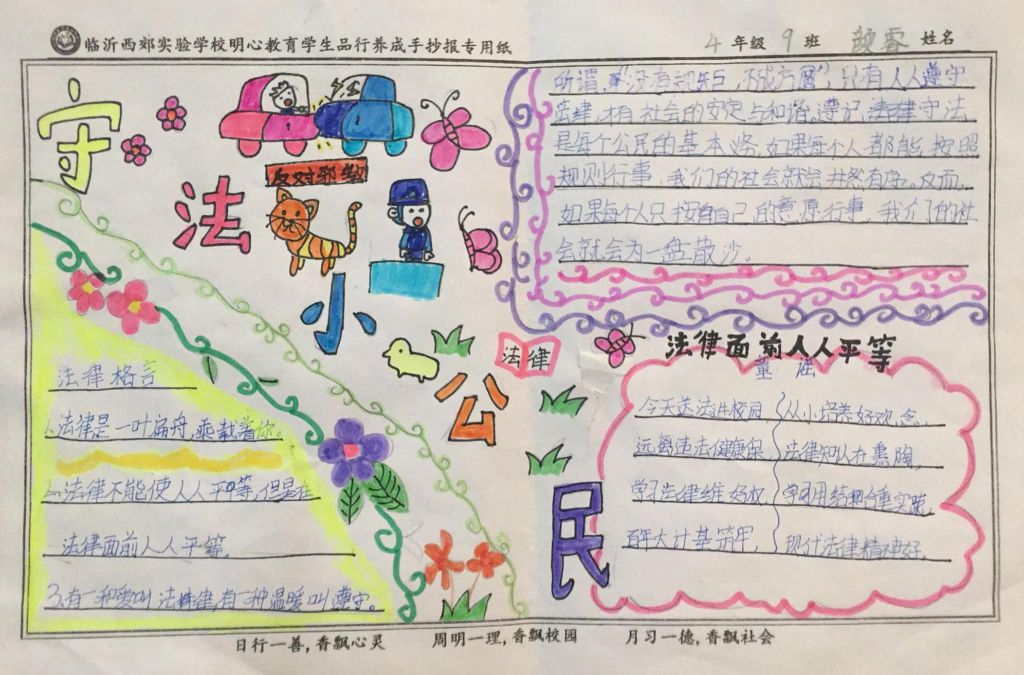 临沂西郊实验学校明心教育学生品行养成手抄报专用纸
4 年级 9 班 姓名
守法小公民
反对邪教
法律
所谓"没有规矩,不成方圆",只有人人遵守
法律,才有社会的安定与和谐,遵记法律守法
是每个公民的基本 如果每个人都能按照
规则行事,我们的社会就会井然有序。反而,
如果每个人只按自自己的意愿行事,我们的社
会就会为一盘散沙。
法律格言
1.法律是一叶扁舟,乘载着你。
2.法律不能使人人平等,但是在
法律面前人人平等。
3.有一种爱叫法律,有一种温暖叫遵守。
法律面前人人平等
童谣
今天送法进校园,从小培养好观念,
远离违法健康保,法律知识在熏陶,
学习法律维 权,学习用结合重实践,
百年大计基筑牢,现代法律精神好,
日行一善,香飘心灵 周明一理,香飘校园 月习一德,香飘社会